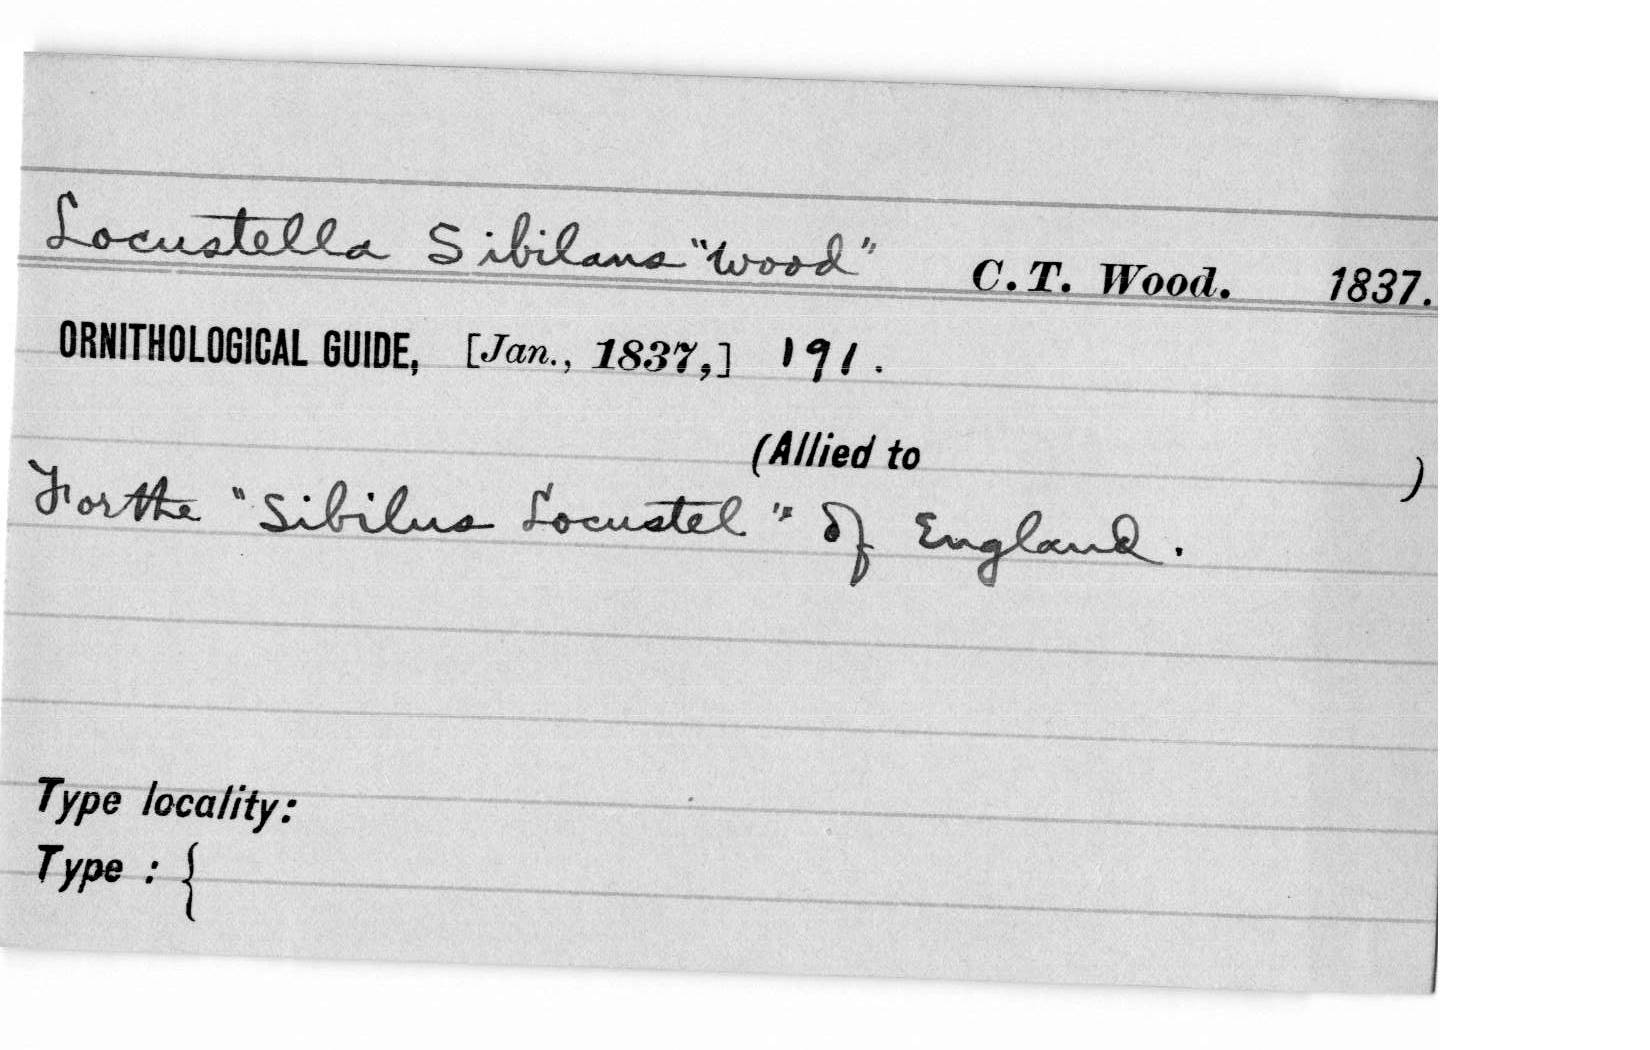 Locustella Sibilans "Wood" C. T. Wood. 1837.
ORNITHOLOGICAL GUIDE, [Jan., 1837,] 191.
(Allied to )
For the "Sibilus Locustel" of England.
Type locality:
Type : {